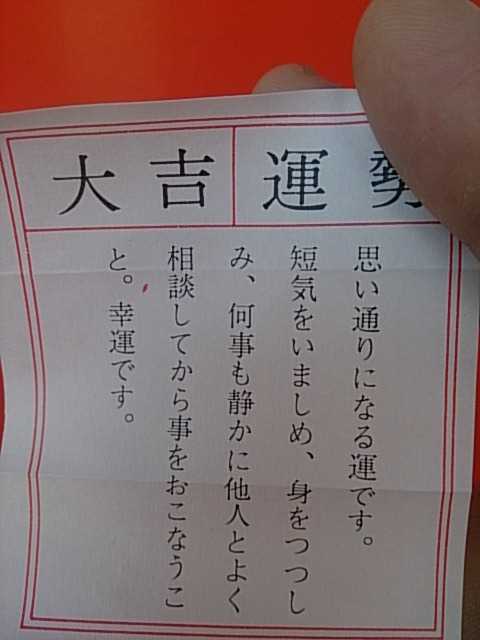 運勢
大吉
思い通りになる運です。
短気をいましめ、身をつつし
み、何事も静かに他人とよく
相談してから事をおこなうこ
と。幸運です。